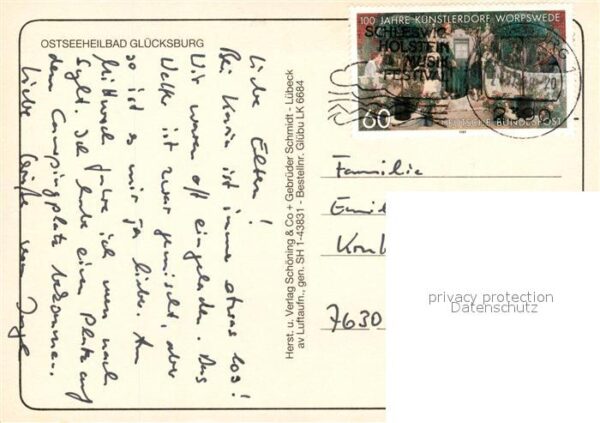 OSTSEEHEILBAD GLÜCKSBURG
Liebe Eltern!
Bei Karin ist immer etwas los!
Wir waren oft eingeladen. Das
Wetter ist zwar gemischt, aber
so ist es mir ja lieber. Am
Mittwoch fahre ich nun nach
Sylt. Ich habe einen Platz auf
dem Campingplatz bekommen.
Liebe Grüße von
Herst. u. Verlag Schöning & Co + Gebrüder Schmidt - Lübeck
av Luftaufn., gen. SH 1-43831 - Bestellnr. Glübu LK 6684
100 JAHRE KÜNSTLERDORF WORPSWEDE
SCHLESWIG
HOLSTEIN
MUSIK
FESTIVAL
60
DEUTSCHE BUNDESPOST
Familie
7630
privacy protection
Datenschutz